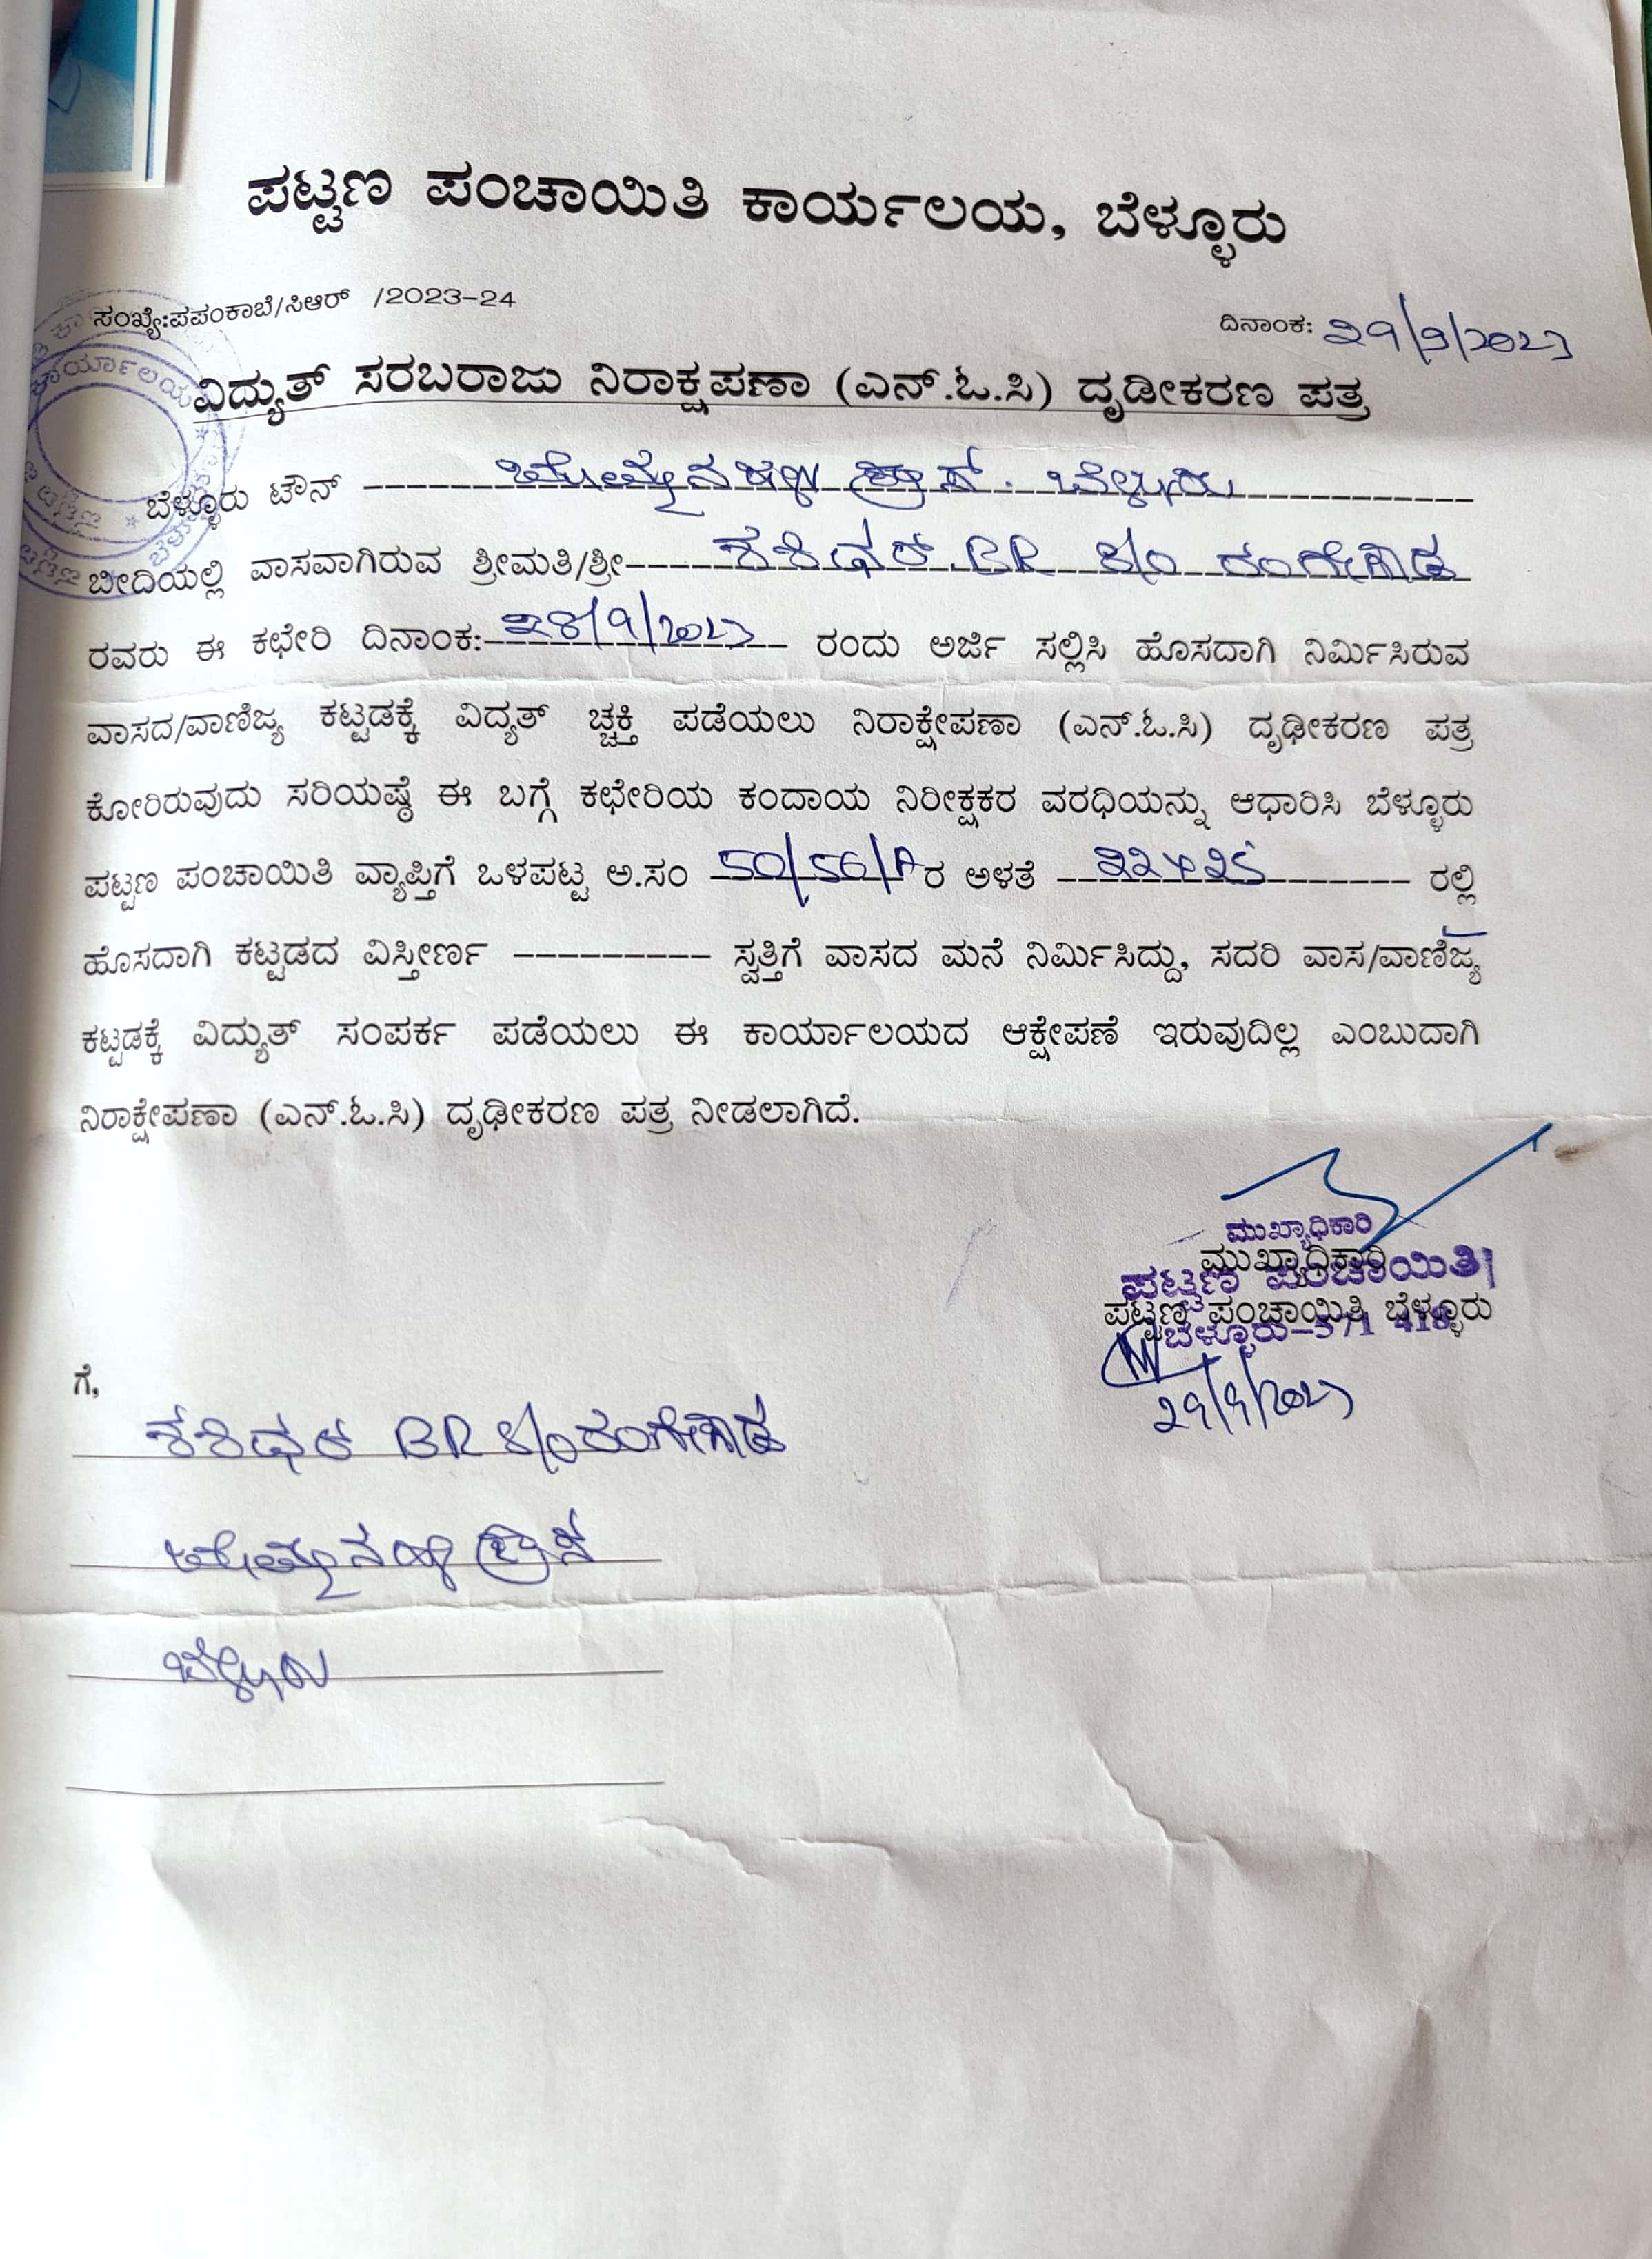 ಪಟ್ಟಣ ಪಂಚಾಯಿತಿ ಕಾರ್ಯಲಯ, ಬೆಳ್ಳೂರು
ಸಂಖ್ಯೆ:ಪಪಂಕಾಬೆ/ಸಿಆರ್ /2023-24
ದಿನಾಂಕ: 29/9/2023
ವಿದ್ಯುತ್ ಸರಬರಾಜು ನಿರಾಕ್ಷಪಣಾ (ಎನ್.ಓ.ಸಿ) ದೃಡೀಕರಣ ಪತ್ರ
ಬೆಳ್ಳೂರು ಟೌನ್ ಬೆಳ್ಳೂರು
ಬೀದಿಯಲ್ಲಿ ವಾಸವಾಗಿರುವ ಶ್ರೀಮತಿ/ಶ್ರೀ ಶಶಿಧರ್. BR S/o ರಂಗೇಗೌಡ
ರವರು ಈ ಕಛೇರಿ ದಿನಾಂಕ: 28/9/2023 ರಂದು ಅರ್ಜಿ ಸಲ್ಲಿಸಿ ಹೊಸದಾಗಿ ನಿರ್ಮಿಸಿರುವ
ವಾಸದ/ವಾಣಿಜ್ಯ ಕಟ್ಟಡಕ್ಕೆ ವಿದ್ಯತ್ ಚ್ಚಕ್ತಿ ಪಡೆಯಲು ನಿರಾಕ್ಷೇಪಣಾ (ಎನ್.ಓ.ಸಿ) ದೃಢೀಕರಣ ಪತ್ರ
ಕೋರಿರುವುದು ಸರಿಯಷ್ಠೆ ಈ ಬಗ್ಗೆ ಕಛೇರಿಯ ಕಂದಾಯ ನಿರೀಕ್ಷಕರ ವರಧಿಯನ್ನು ಆಧಾರಿಸಿ ಬೆಳ್ಳೂರು
ಪಟ್ಟಣ ಪಂಚಾಯಿತಿ ವ್ಯಾಪ್ತಿಗೆ ಒಳಪಟ್ಟ ಅ.ಸಂ 50/56/A ರ ಅಳತೆ 22x25 ರಲ್ಲಿ
ಹೊಸದಾಗಿ ಕಟ್ಟಡದ ವಿಸ್ತೀರ್ಣ --------- ಸ್ವತ್ತಿಗೆ ವಾಸದ ಮನೆ ನಿರ್ಮಿಸಿದ್ದು, ಸದರಿ ವಾಸ/ವಾಣಿಜ್ಯ
ಕಟ್ಟಡಕ್ಕೆ ವಿದ್ಯುತ್ ಸಂಪರ್ಕ ಪಡೆಯಲು ಈ ಕಾರ್ಯಾಲಯದ ಆಕ್ಷೇಪಣೆ ಇರುವುದಿಲ್ಲ ಎಂಬುದಾಗಿ
ನಿರಾಕ್ಷೇಪಣಾ (ಎನ್.ಓ.ಸಿ) ದೃಢೀಕರಣ ಪತ್ರ ನೀಡಲಾಗಿದೆ.
ಮುಖ್ಯಾಧಿಕಾರಿ
ಮುಖ್ಯಾಧಿಕಾರಿ
ಪಟ್ಟಣ ಪಂಚಾಯಿತಿ
ಪಟ್ಟಣ ಪಂಚಾಯಿತಿ ಬೆಳ್ಳೂರು
ಬೆಳ್ಳೂರು-571 418
29/9/2023
ಗೆ,
ಶಶಿಧರ BR S/o ರಂಗೇಗೌಡ
ಬೆಳ್ಳೂರು